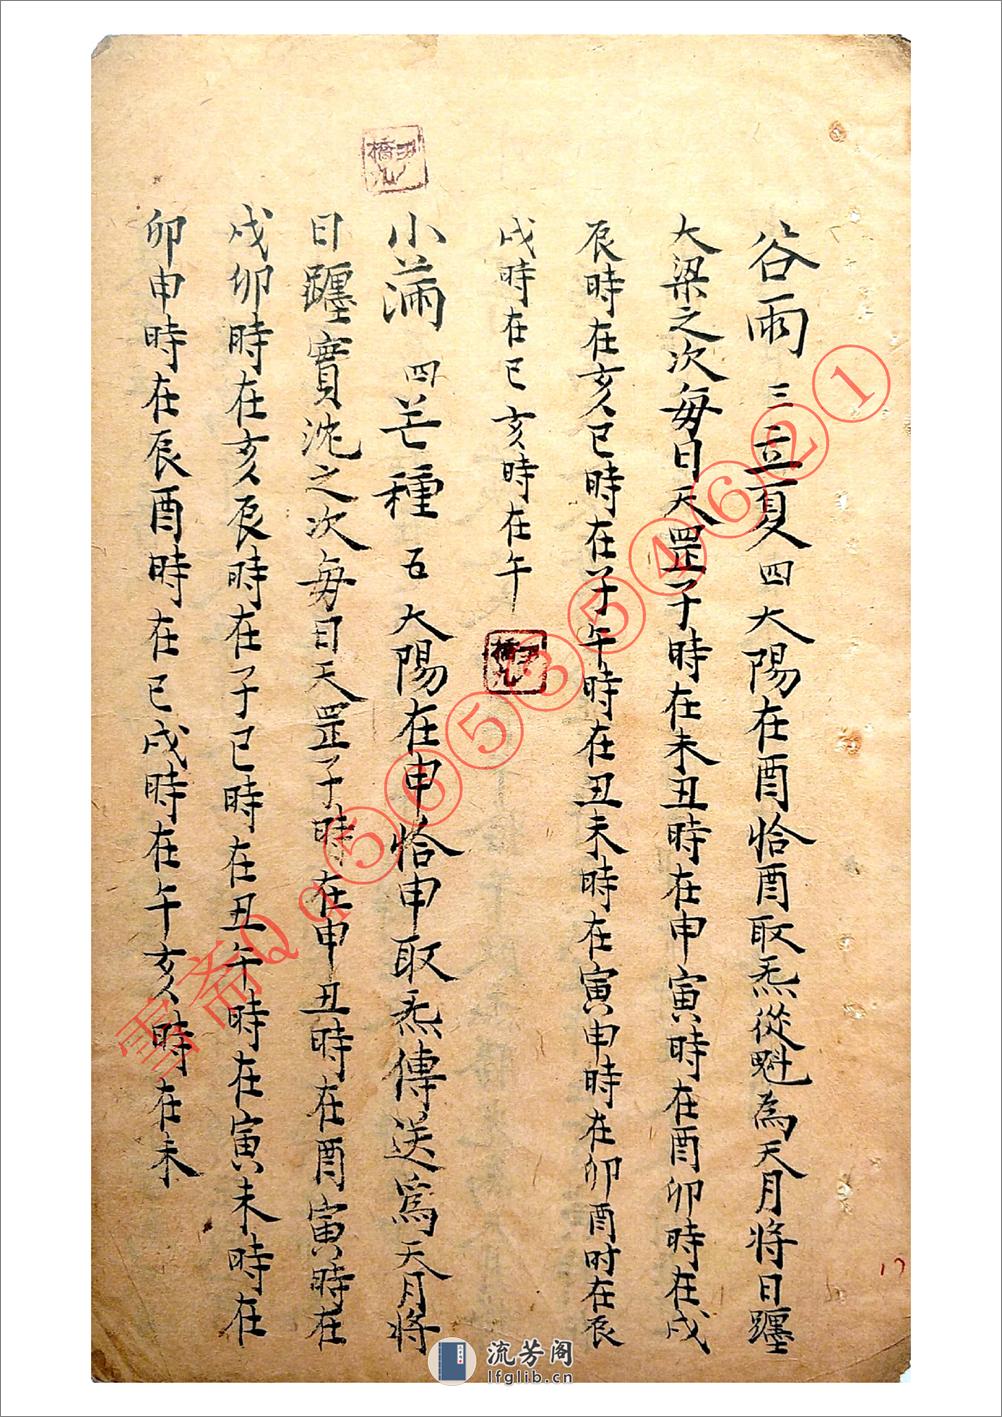 谷雨三立夏四大陽在酉恰酉取炁從魁為天月将日躔
大梁之次每日天罡子時在未丑時在申寅時在酉卯時在戌
辰時在亥巳時在子午時在丑未時在寅申時在卯酉时在辰
戌時在巳亥時在午
小滿四芒種五大陽在申恰申取炁傳送爲天月将
日躔實沈之次每日天罡子時在申丑時在酉寅時在
戌卯時在亥辰時在子巳時在丑午時在寅未時在
卯申時在辰酉時在巳戌時在午亥時在未
雪斋Qq⑤⑥⑤③⑤④⑥②①
流芳阁
lfglib.cn